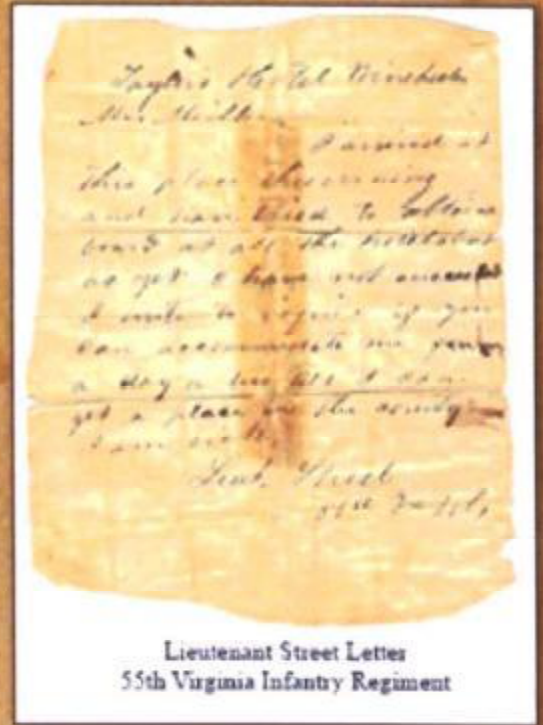 Taylors Hotel Winchester
Mrs Miller
I arrived at
this place this evening
and have tried to obtain
board at all the hotels but
as yet I have not succeeded
I write to inquire if you
can accommodate me for
a day or two till I can
get a place in the country
I am
Lieut. Street
55th
Lieutenant Street Letter
55th Virginia Infantry Regiment